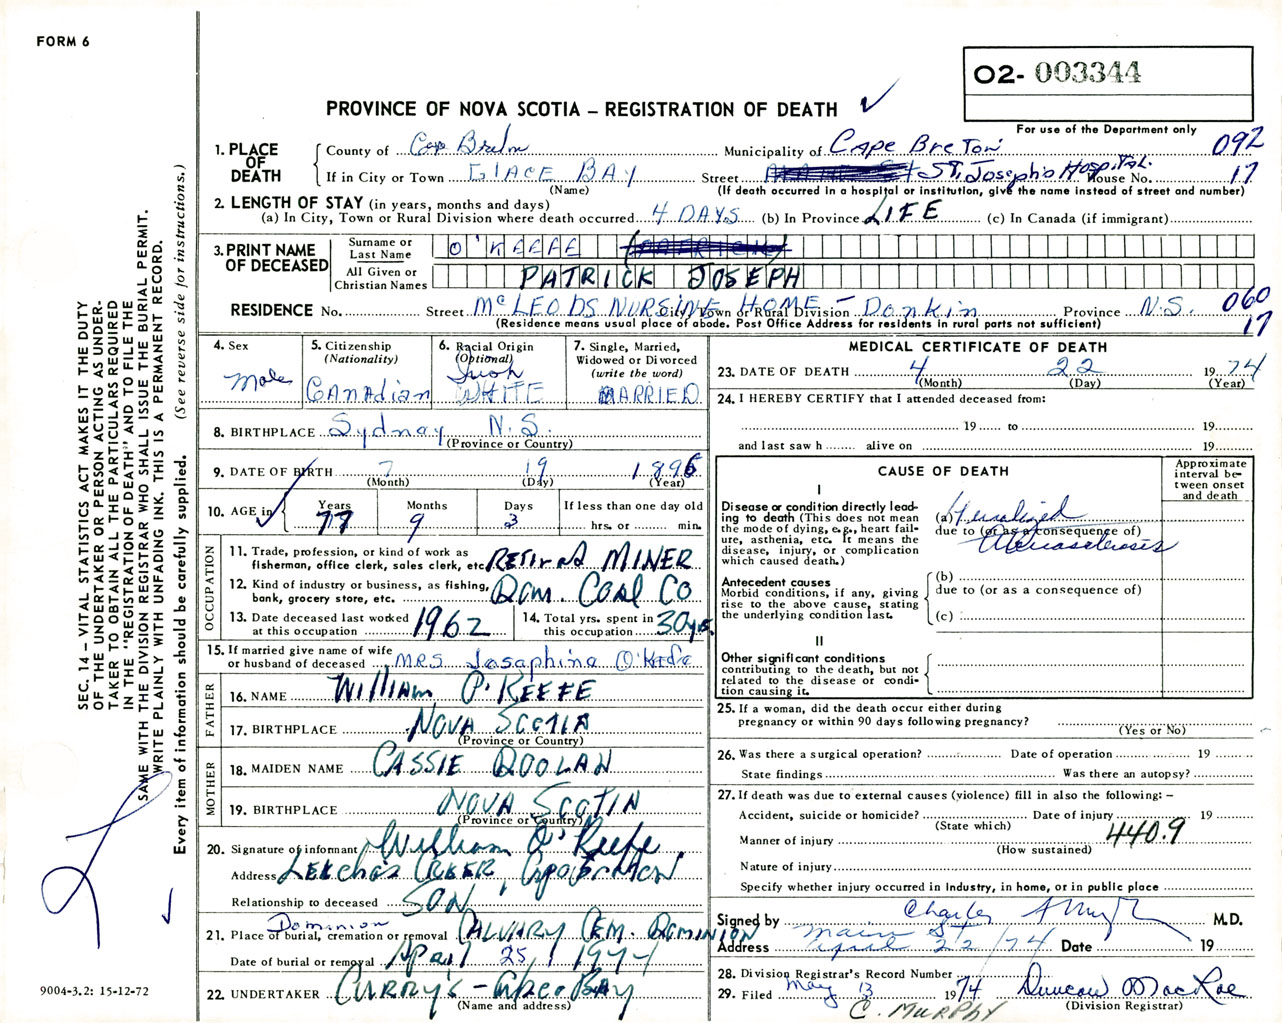 FORM 6
O2- 003344
PROVINCE OF NOVA SCOTIA – REGISTRATION OF DEATH
For use of the Department only
1. PLACE OF DEATH
County of Cap Breton Municipality of Cape Breton 092
If in City or Town GLACE BAY Street St. Joseph's Hospital. House No. 17
(Name) (If death occurred in a hospital or institution, give the name instead of street and number)
2. LENGTH OF STAY (in years, months and days)
(a) In City, Town or Rural Division where death occurred 4 DAYS (b) In Province LIFE (c) In Canada (if immigrant)
3. PRINT NAME OF DECEASED
Surname or Last Name O'KEEFE
All Given or Christian Names PATRICK JOSEPH
RESIDENCE No. Street McLEODS NURSING HOME – City, Town or Rural Division Donkin Province N.S. 060
(Residence means usual place of abode. Post Office Address for residents in rural parts not sufficient) 17
4. Sex Male
5. Citizenship (Nationality) Canadian
6. Racial Origin (Optional) Irish WHITE
7. Single, Married, Widowed or Divorced (write the word) MARRIED
8. BIRTHPLACE Sydney N.S.
(Province or Country)
9. DATE OF BIRTH 7 19 1896
(Month) (Day) (Year)
10. AGE in Years 77 Months 9 Days 3 If less than one day old hrs. or min.
OCCUPATION
11. Trade, profession, or kind of work as fisherman, office clerk, sales clerk, etc. Retired MINER
12. Kind of industry or business, as fishing, bank, grocery store, etc. Dom. Coal Co
13. Date deceased last worked at this occupation 1962
14. Total yrs. spent in this occupation 30 yrs.
15. If married give name of wife or husband of deceased MRS Josephine O'Keefe
FATHER
16. NAME William O'KEEFE
17. BIRTHPLACE NOVA SCOTIA
(Province or Country)
MOTHER
18. MAIDEN NAME CASSIE DOOLAN
19. BIRTHPLACE NOVA SCOTIA
(Province or Country)
20. Signature of informant William O'Keefe
Address Leeches Creek, Cape Breton
Relationship to deceased SON
Dominion
21. Place of burial, cremation or removal CALVARY CEM. DOMINION
Date of burial or removal April 25, 1974
22. UNDERTAKER CURRY'S – Glace BAY
(Name and address)
MEDICAL CERTIFICATE OF DEATH
23. DATE OF DEATH 4 22 19 74
(Month) (Day) (Year)
24. I HEREBY CERTIFY that I attended deceased from:
19 to 19
and last saw h alive on 19
CAUSE OF DEATH
Approximate interval between onset and death
I
Disease or condition directly leading to death (This does not mean the mode of dying, e.g., heart failure, asthenia, etc. It means the disease, injury, or complication which caused death.)
(a) Generalized
due to (or as a consequence of)
Atherosclerosis
Antecedent causes
Morbid conditions, if any, giving rise to the above cause, stating the underlying condition last.
(b)
due to (or as a consequence of)
(c)
II
Other significant conditions
contributing to the death, but not related to the disease or condition causing it.
25. If a woman, did the death occur either during pregnancy or within 90 days following pregnancy?
(Yes or No)
26. Was there a surgical operation? Date of operation 19
State findings Was there an autopsy?
27. If death was due to external causes (violence) fill in also the following: –
Accident, suicide or homicide? Date of injury 19
(State which)
Manner of injury 440.9
(How sustained)
Nature of injury
Specify whether injury occurred in Industry, in home, or in public place
Signed by Charles Murphy M.D.
Address Main St Date 19
April 22/74
28. Division Registrar's Record Number
29. Filed May 13 1974 Duncan MacRae
(Division Registrar)
C. MURPHY
SEC. 14 – VITAL STATISTICS ACT MAKES IT THE DUTY
OF THE UNDERTAKER OR PERSON ACTING AS UNDER-
TAKER TO OBTAIN ALL THE PARTICULARS REQUIRED
IN THE "REGISTRATION OF DEATH" AND TO FILE THE
SAME WITH THE DIVISION REGISTRAR WHO SHALL ISSUE THE BURIAL PERMIT.
WRITE PLAINLY WITH UNFADING INK. THIS IS A PERMANENT RECORD.
Every item of information should be carefully supplied. (See reverse side for instructions.)
9004-3.2: 15-12-72